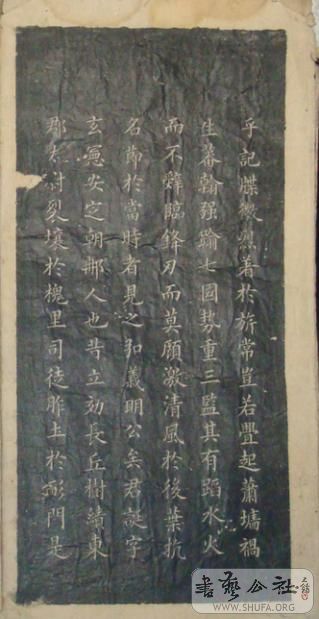 乎記牒徽烈著於旂常豈若舋起蕭墻禍
生蕃翰强踰七國勢重三監其有蹈水火
而不辭臨鋒刃而莫顧激清風於後葉抗
名節於當時者見之弘義明公矣君誕字
玄憲安定朝那人也昔立効長丘樹績東
郡太尉裂壤於槐里司徒胙土於耏門是
書藝公社
WWW.SHUFA.ORG